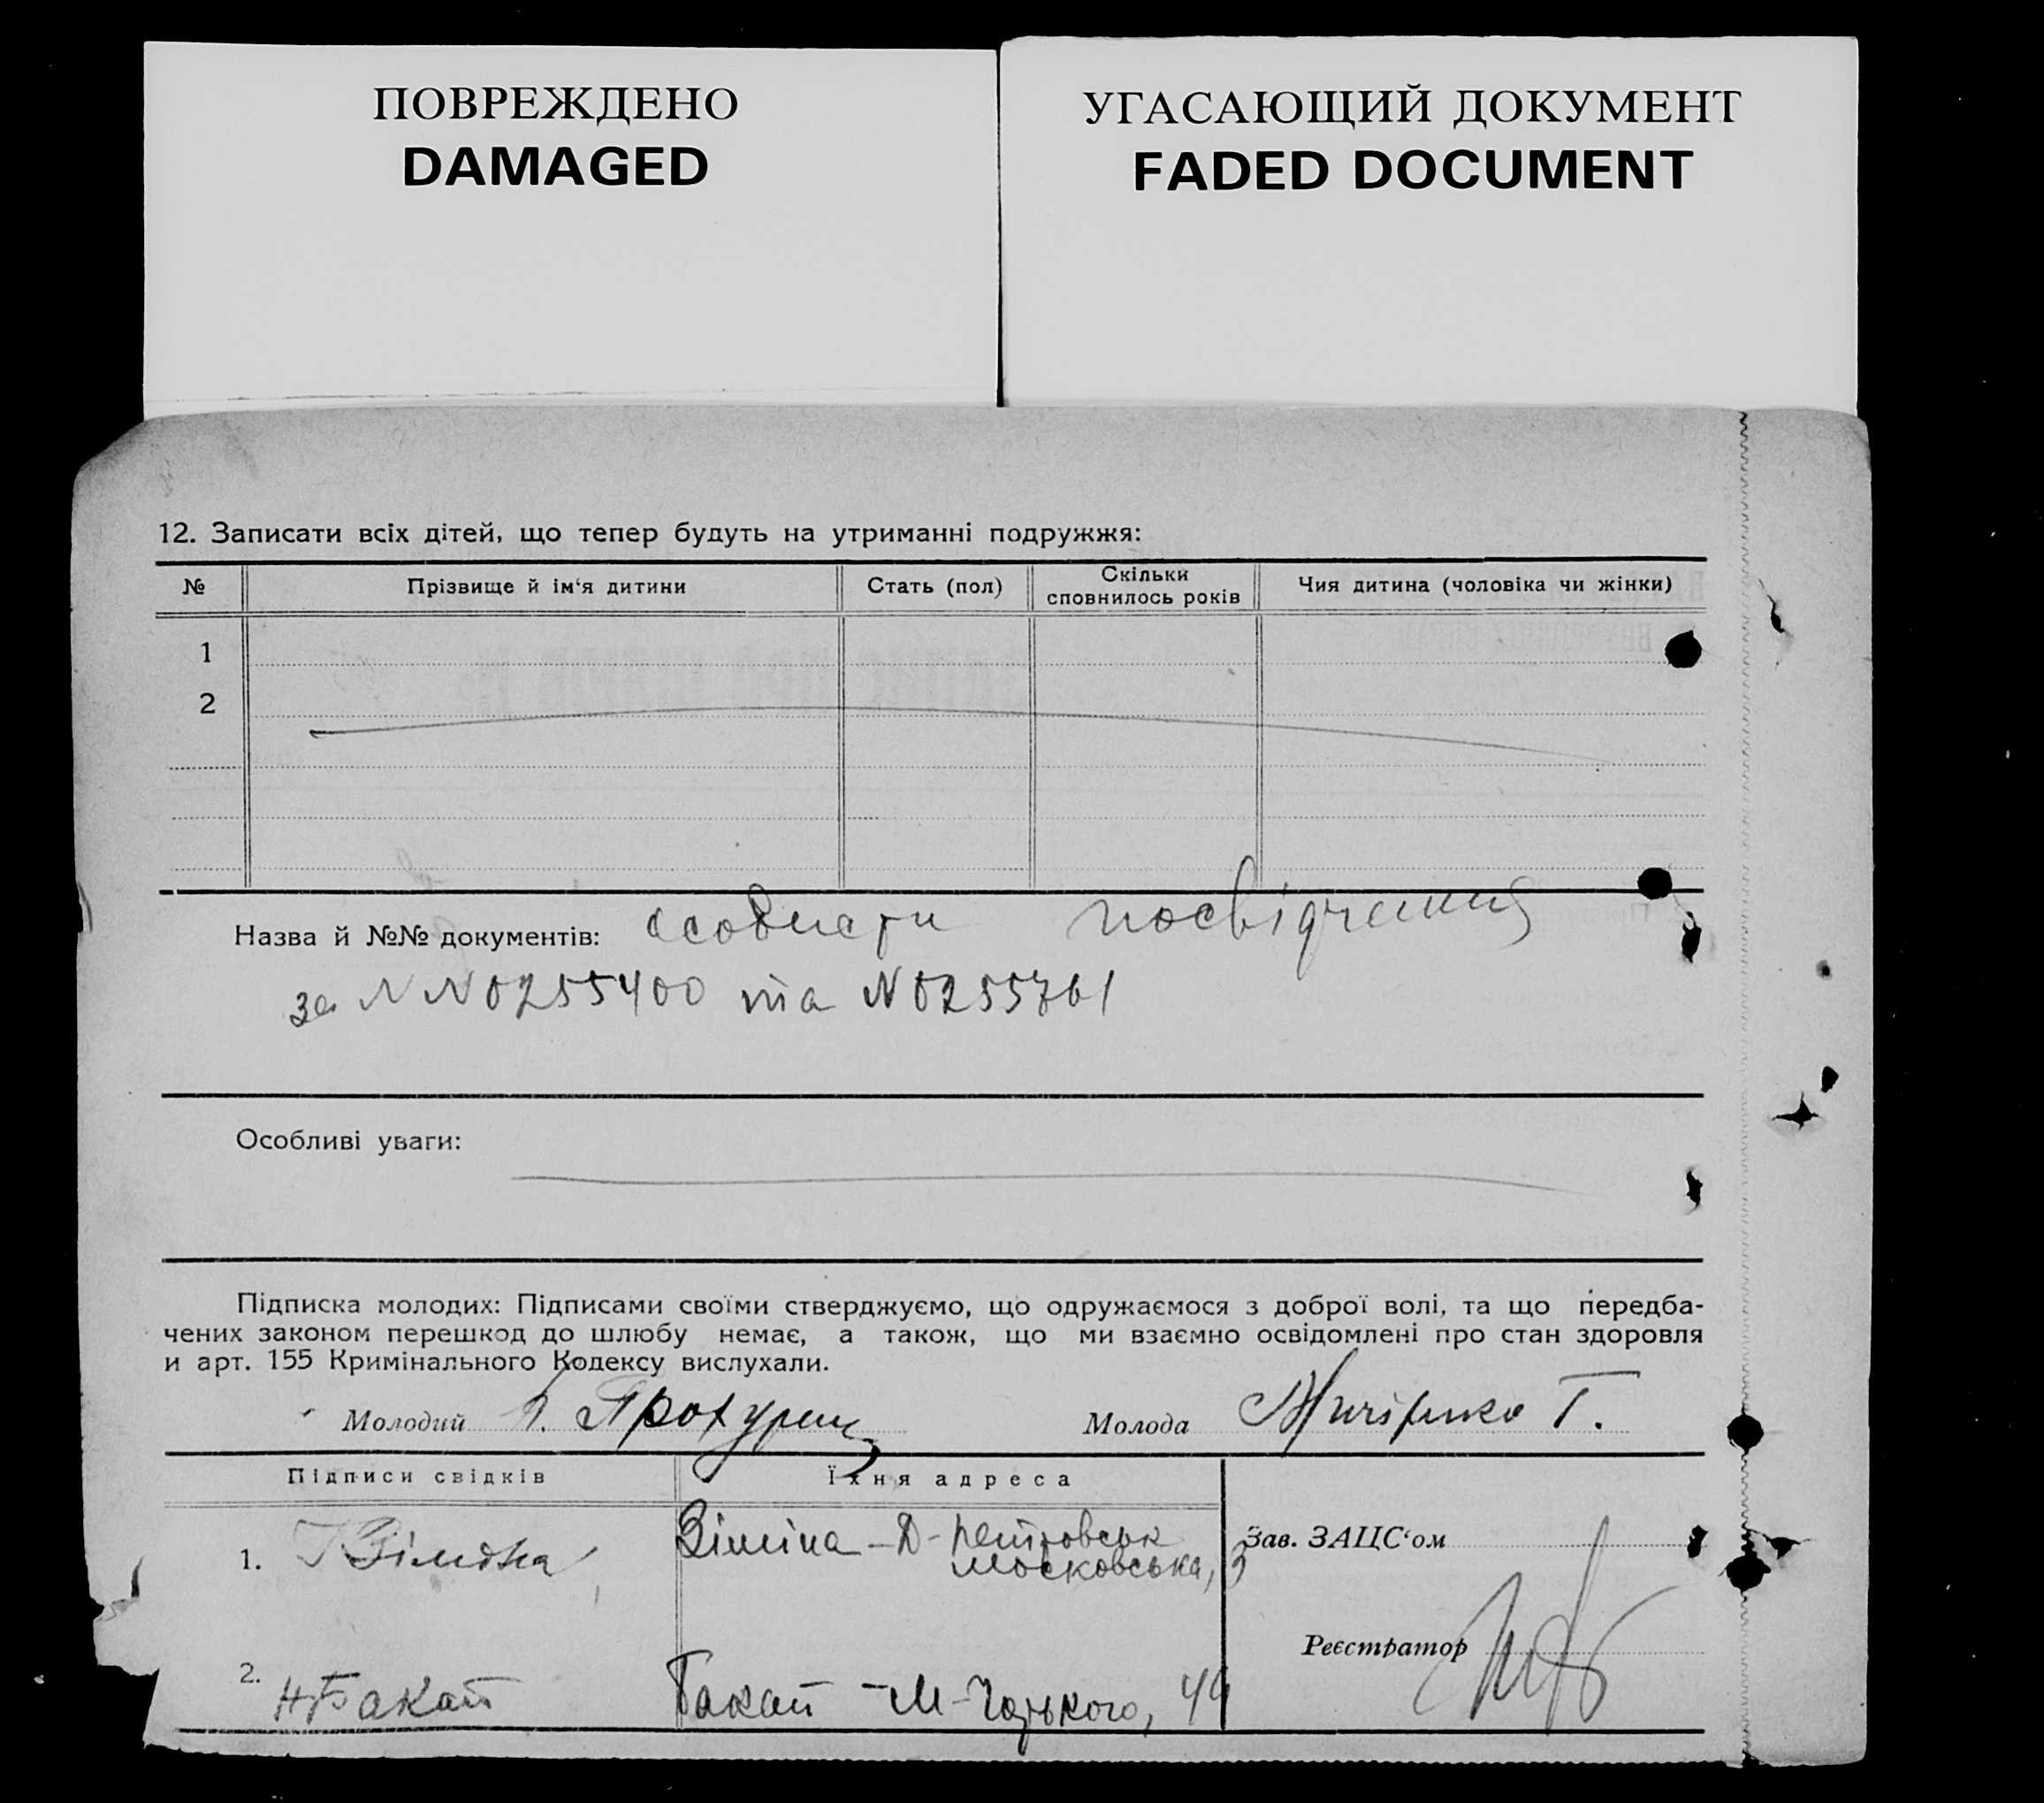 ПОВРЕЖДЕНО
DAMAGED
УГАСАЮЩИЙ ДОКУМЕНТ
FADED DOCUMENT
12. Записати всіх дітей, що тепер будуть на утриманні подружжя:
№ Прізвище й ім‘я дитини Стать (пол) Скільки сповнилось років Чия дитина (чоловіка чи жінки)
1
2
Назва й №№ документів: посвідчення
за N N 0255400 та N 0255761
Особливі уваги:
Підписка молодих: Підписами своїми стверджуємо, що одружаємося з доброї волі, та що передба-
чених законом перешкод до шлюбу немає, а також, що ми взаємно освідомлені про стан здоровля
и арт. 155 Кримінального Кодексу вислухали.
Молодий Молода Т.
Підписи свідків Їхня адреса
1. Зіміна – Д-петровськ Зав. ЗАЦС‘ом
Московська, 3
Реєстратор
2. Н Бакай Бакай – М-Горького, 49